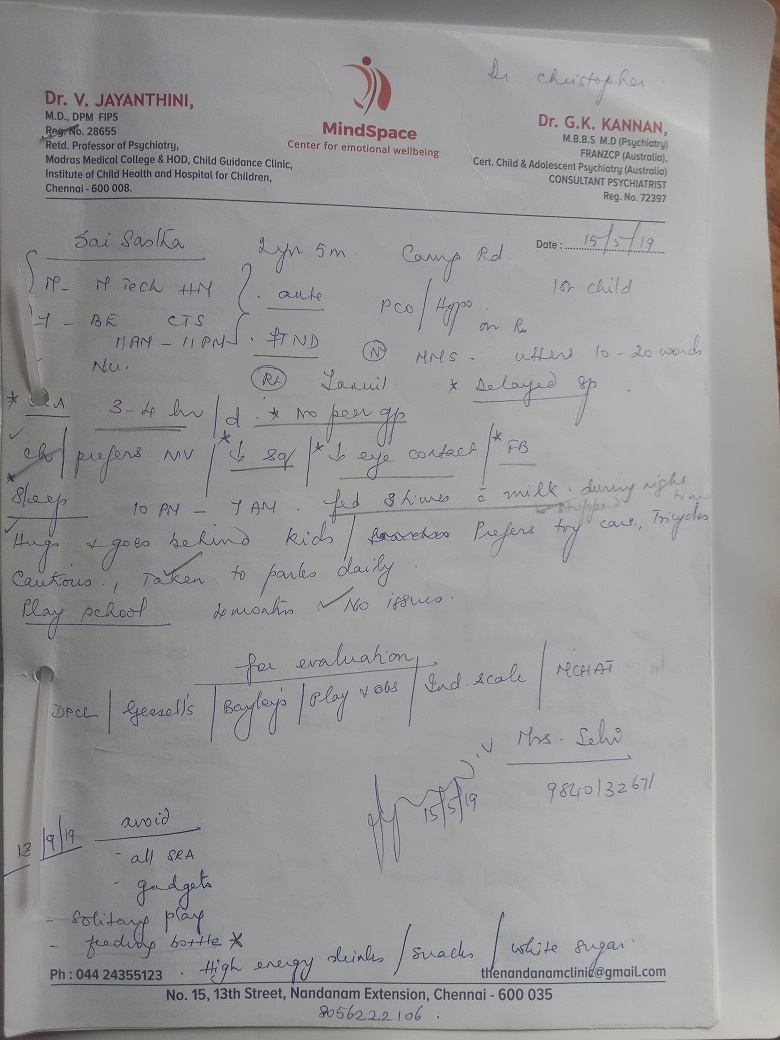 Dr. Christopher
Dr. V. JAYANTHINI,
M.D., DPM FIPS
Reg. No. 28655
Retd. Professor of Psychiatry,
Madras Medical College & HOD, Child Guidance Clinic,
Institute of Child Health and Hospital for Children,
Chennai - 600 008.
MindSpace
Center for emotional wellbeing
Dr. G.K. KANNAN,
M.B.B.S M.D (Psychiatry)
FRANZCP (Australia).
Cert. Child & Adolescent Psychiatry (Australia)
CONSULTANT PSYCHIATRIST
Reg. No. 72397
Date : 15/5/19
Sai 2yr 5m Camp Rd.
M - M Tech 1st child
F - BE CTS PCO / Hypo on Rx
11AM - 11PM FTND
Nu. N MMS. utters 10-20 words
Rt Tamil * Delayed sp
* SRA 3-4 hr/d. * No peer gp
ch/ prefers NV / * ↓ sq / * ↓ eye contact / * FB
* Sleep 10 PM - 7 AM. fed 3 times c̄ milk. during night
stopped
Hugs & goes behind kids / Prefers toy cars, Tricycles
Cautious, Taken to parks daily
Play school 4 months No issues.
for evaluation
DPCL / Gessell's / Bayley's / Play & obs / Ind. scale / MCHAT
Mrs. Selvi
9840132671
15/5/19
12/9/19 avoid
- all SRA
- gadgets
- Solitary play
- feeding bottle *
- High energy drinks / snacks / white sugar.
Ph : 044 24355123
thenandanamclinic@gmail.com
No. 15, 13th Street, Nandanam Extension, Chennai - 600 035
8056222106.